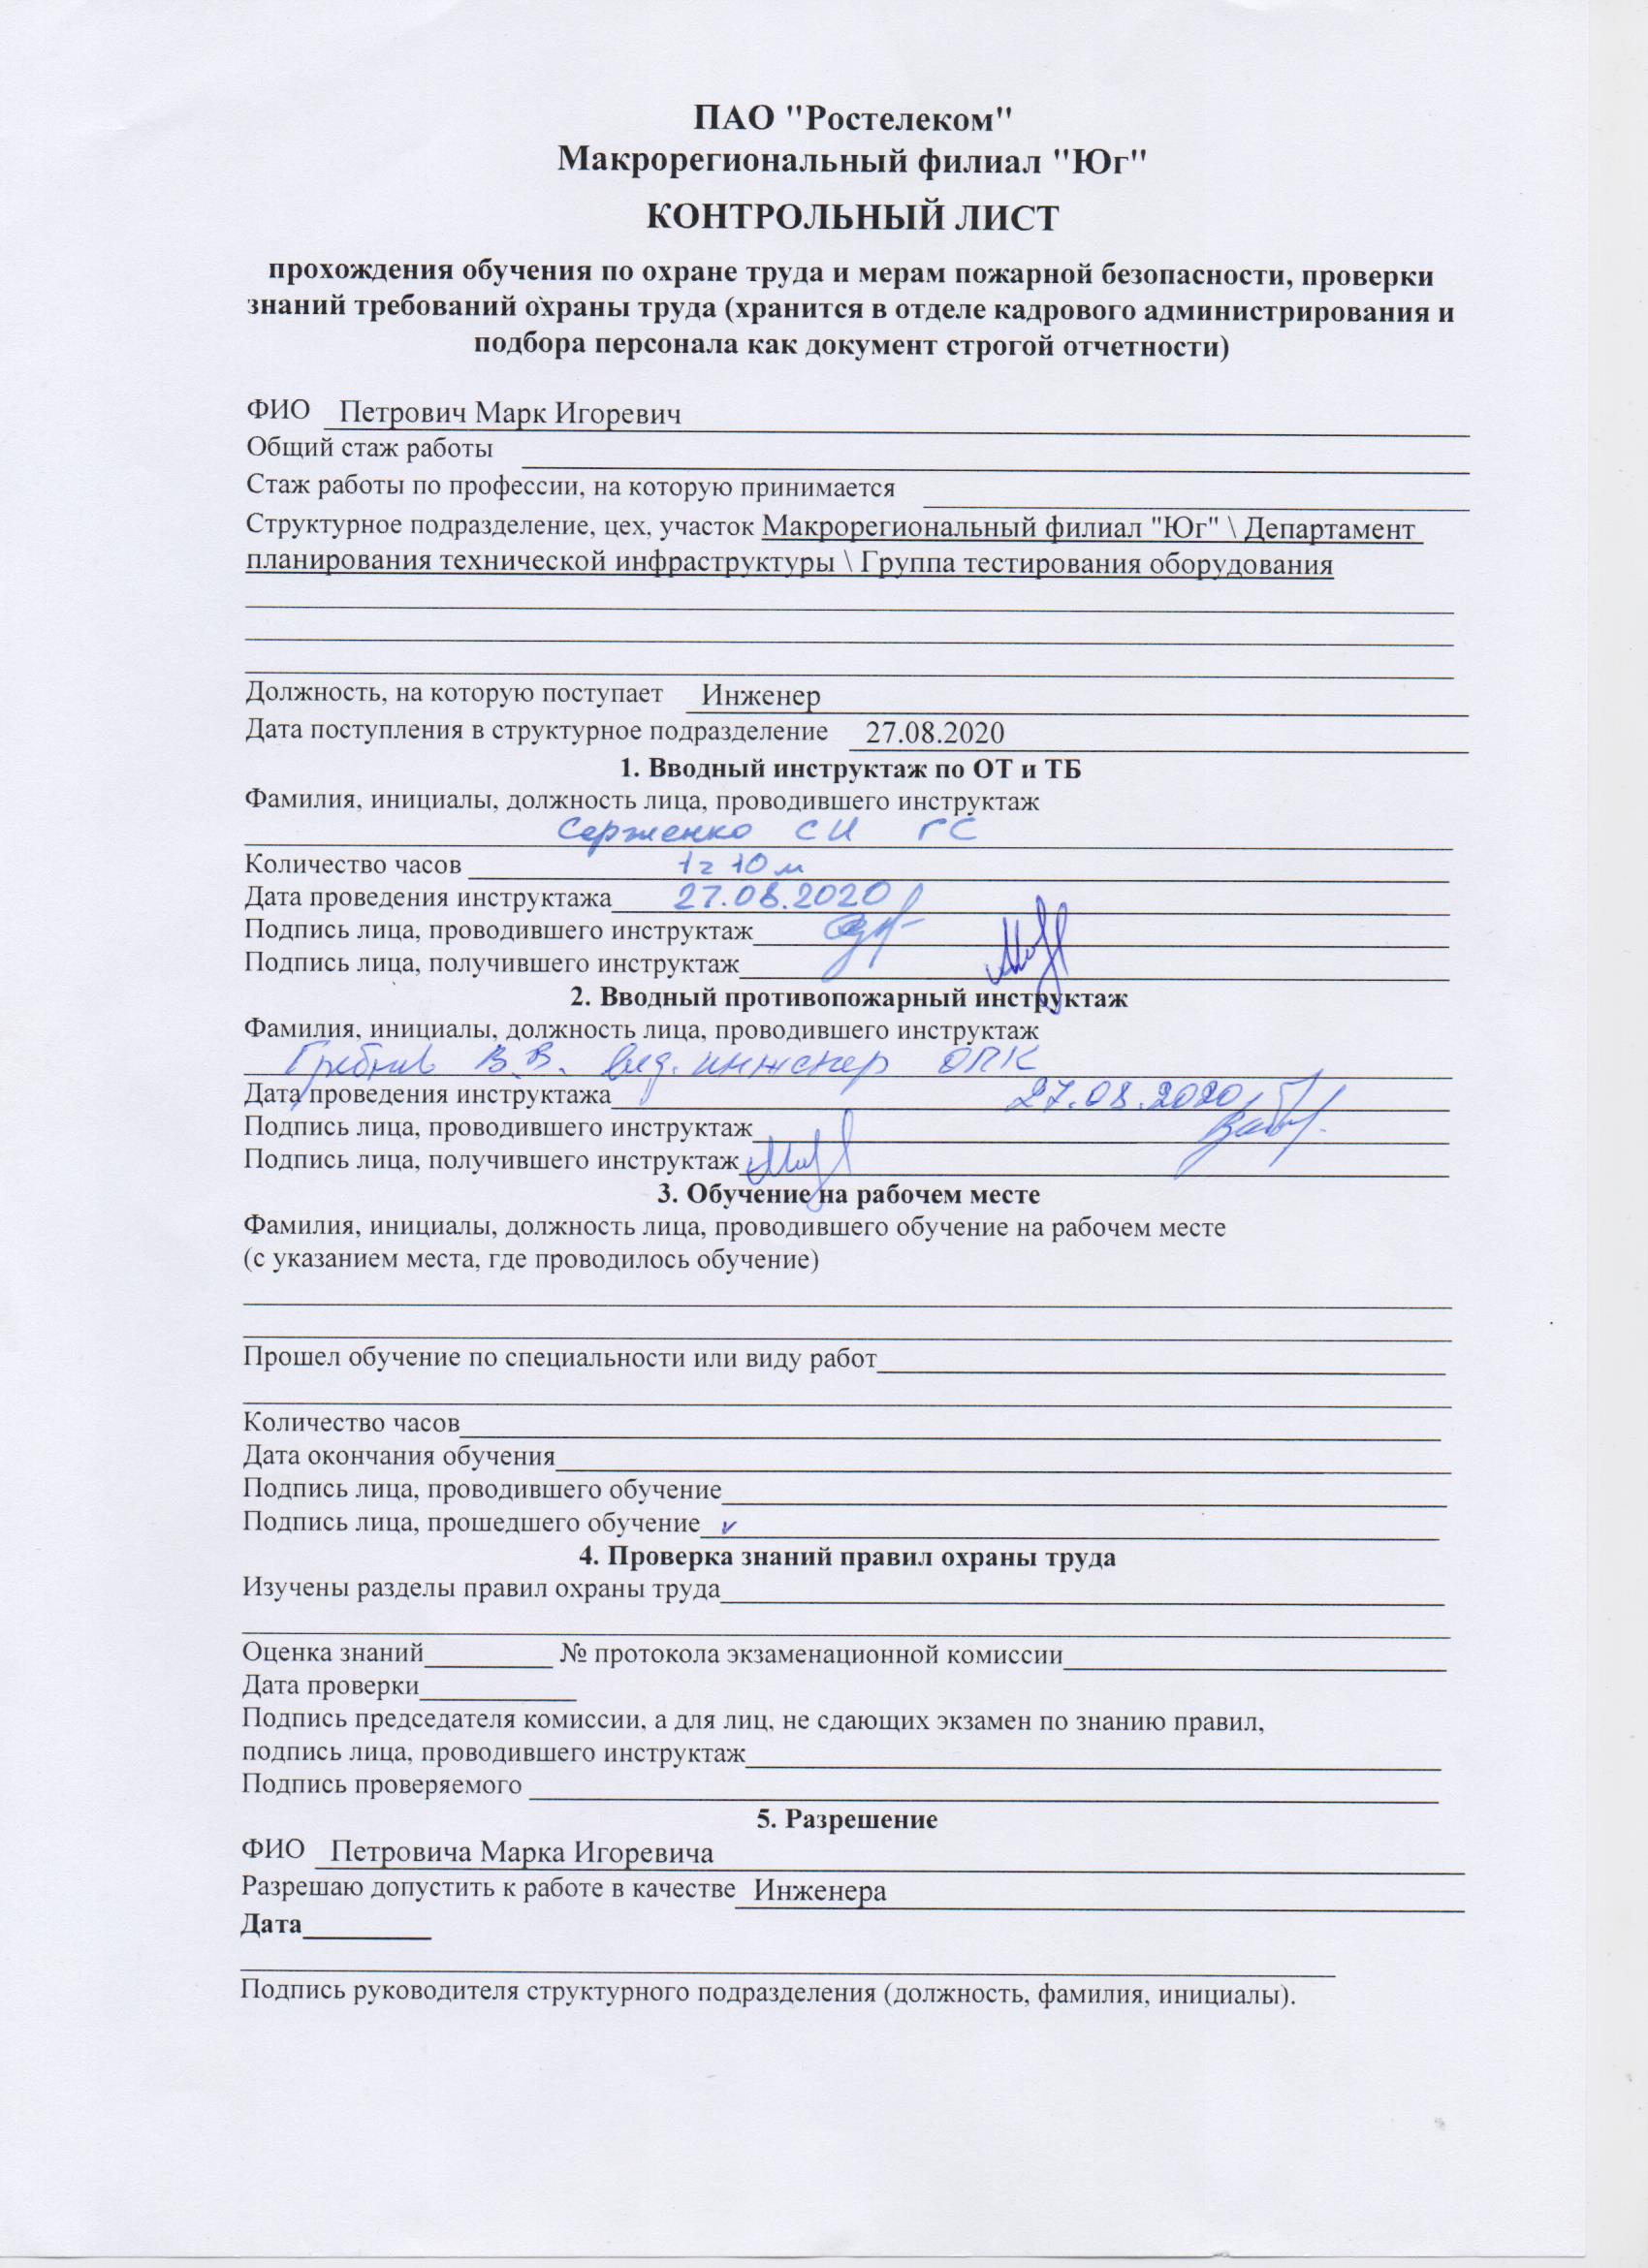 ПАО "Ростелеком"
Макрорегиональный филиал "Юг"
КОНТРОЛЬНЫЙ ЛИСТ
прохождения обучения по охране труда и мерам пожарной безопасности, проверки
знаний требований охраны труда (хранится в отделе кадрового администрирования и
подбора персонала как документ строгой отчетности)
ФИО Петрович Марк Игоревич
Общий стаж работы
Стаж работы по профессии, на которую принимается
Структурное подразделение, цех, участок Макрорегиональный филиал "Юг" \ Департамент
планирования технической инфраструктуры \ Группа тестирования оборудования
Должность, на которую поступает Инженер
Дата поступления в структурное подразделение 27.08.2020
1. Вводный инструктаж по ОТ и ТБ
Фамилия, инициалы, должность лица, проводившего инструктаж
Серженко СИ ГС
Количество часов 1г 10м
Дата проведения инструктажа 27.08.2020
Подпись лица, проводившего инструктаж
Подпись лица, получившего инструктаж
2. Вводный противопожарный инструктаж
Фамилия, инициалы, должность лица, проводившего инструктаж
В.В. вед. инженер ОПК
Дата проведения инструктажа 27.08.2020
Подпись лица, проводившего инструктаж
Подпись лица, получившего инструктаж
3. Обучение на рабочем месте
Фамилия, инициалы, должность лица, проводившего обучение на рабочем месте
(с указанием места, где проводилось обучение)
Прошел обучение по специальности или виду работ
Количество часов
Дата окончания обучения
Подпись лица, проводившего обучение
Подпись лица, прошедшего обучение
4. Проверка знаний правил охраны труда
Изучены разделы правил охраны труда
Оценка знаний № протокола экзаменационной комиссии
Дата проверки
Подпись председателя комиссии, а для лиц, не сдающих экзамен по знанию правил,
подпись лица, проводившего инструктаж
Подпись проверяемого
5. Разрешение
ФИО Петровича Марка Игоревича
Разрешаю допустить к работе в качестве Инженера
Дата
Подпись руководителя структурного подразделения (должность, фамилия, инициалы).